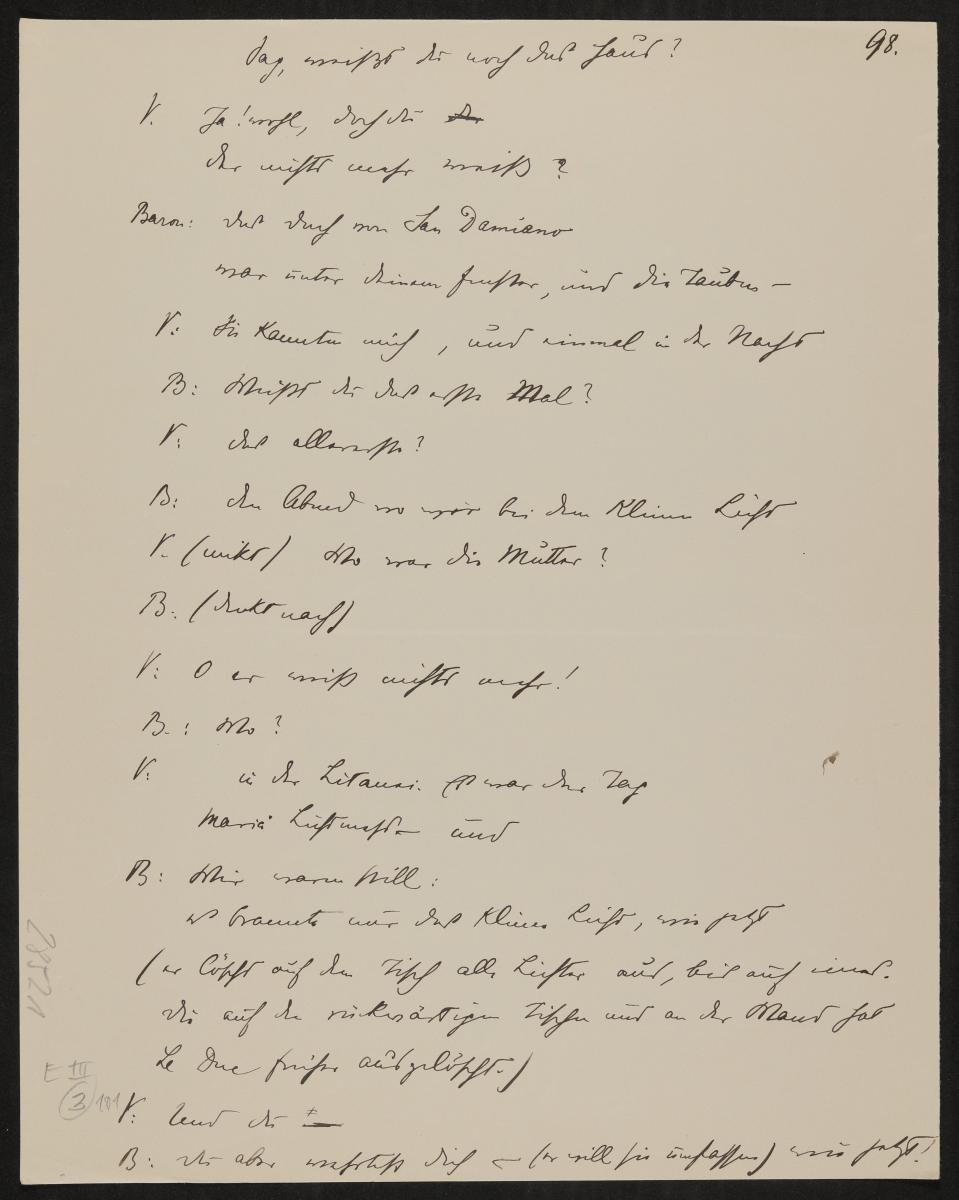 98.
Sag, weißt du noch das Haus?
V. Ja! wohl, doch du der
der nichts mehr weiß?
Baron: das Dach von San Damiano
war unter deinem Fenster, und die Tauben –
V: Sie kannten mich, und einmal in der Nacht
B: Weißt du das erste Mal?
V: das allererste?
B: den Abend wo wir bei dem kleinen Licht
V. (nickt) Wo war die Mutter?
B: (denkt nach)
V: O er weiß nichts mehr!
B.: Wo?
V: in der Litanei. Es war der Tag
Mariä Lichtmess – und
B: Wir waren still:
es brannte nur das kleine Licht, wie jetzt
(er löscht auf dem Tisch alle Lichter aus, bis auf eines.
die auf den rückwärtigen Tischen und an der Wand hat
Le Duc früher ausgelöscht.)
V: Und du –
B: du aber wehrtest dich – (er will sie umfassen) wie jetzt!
28521
E III
3 101